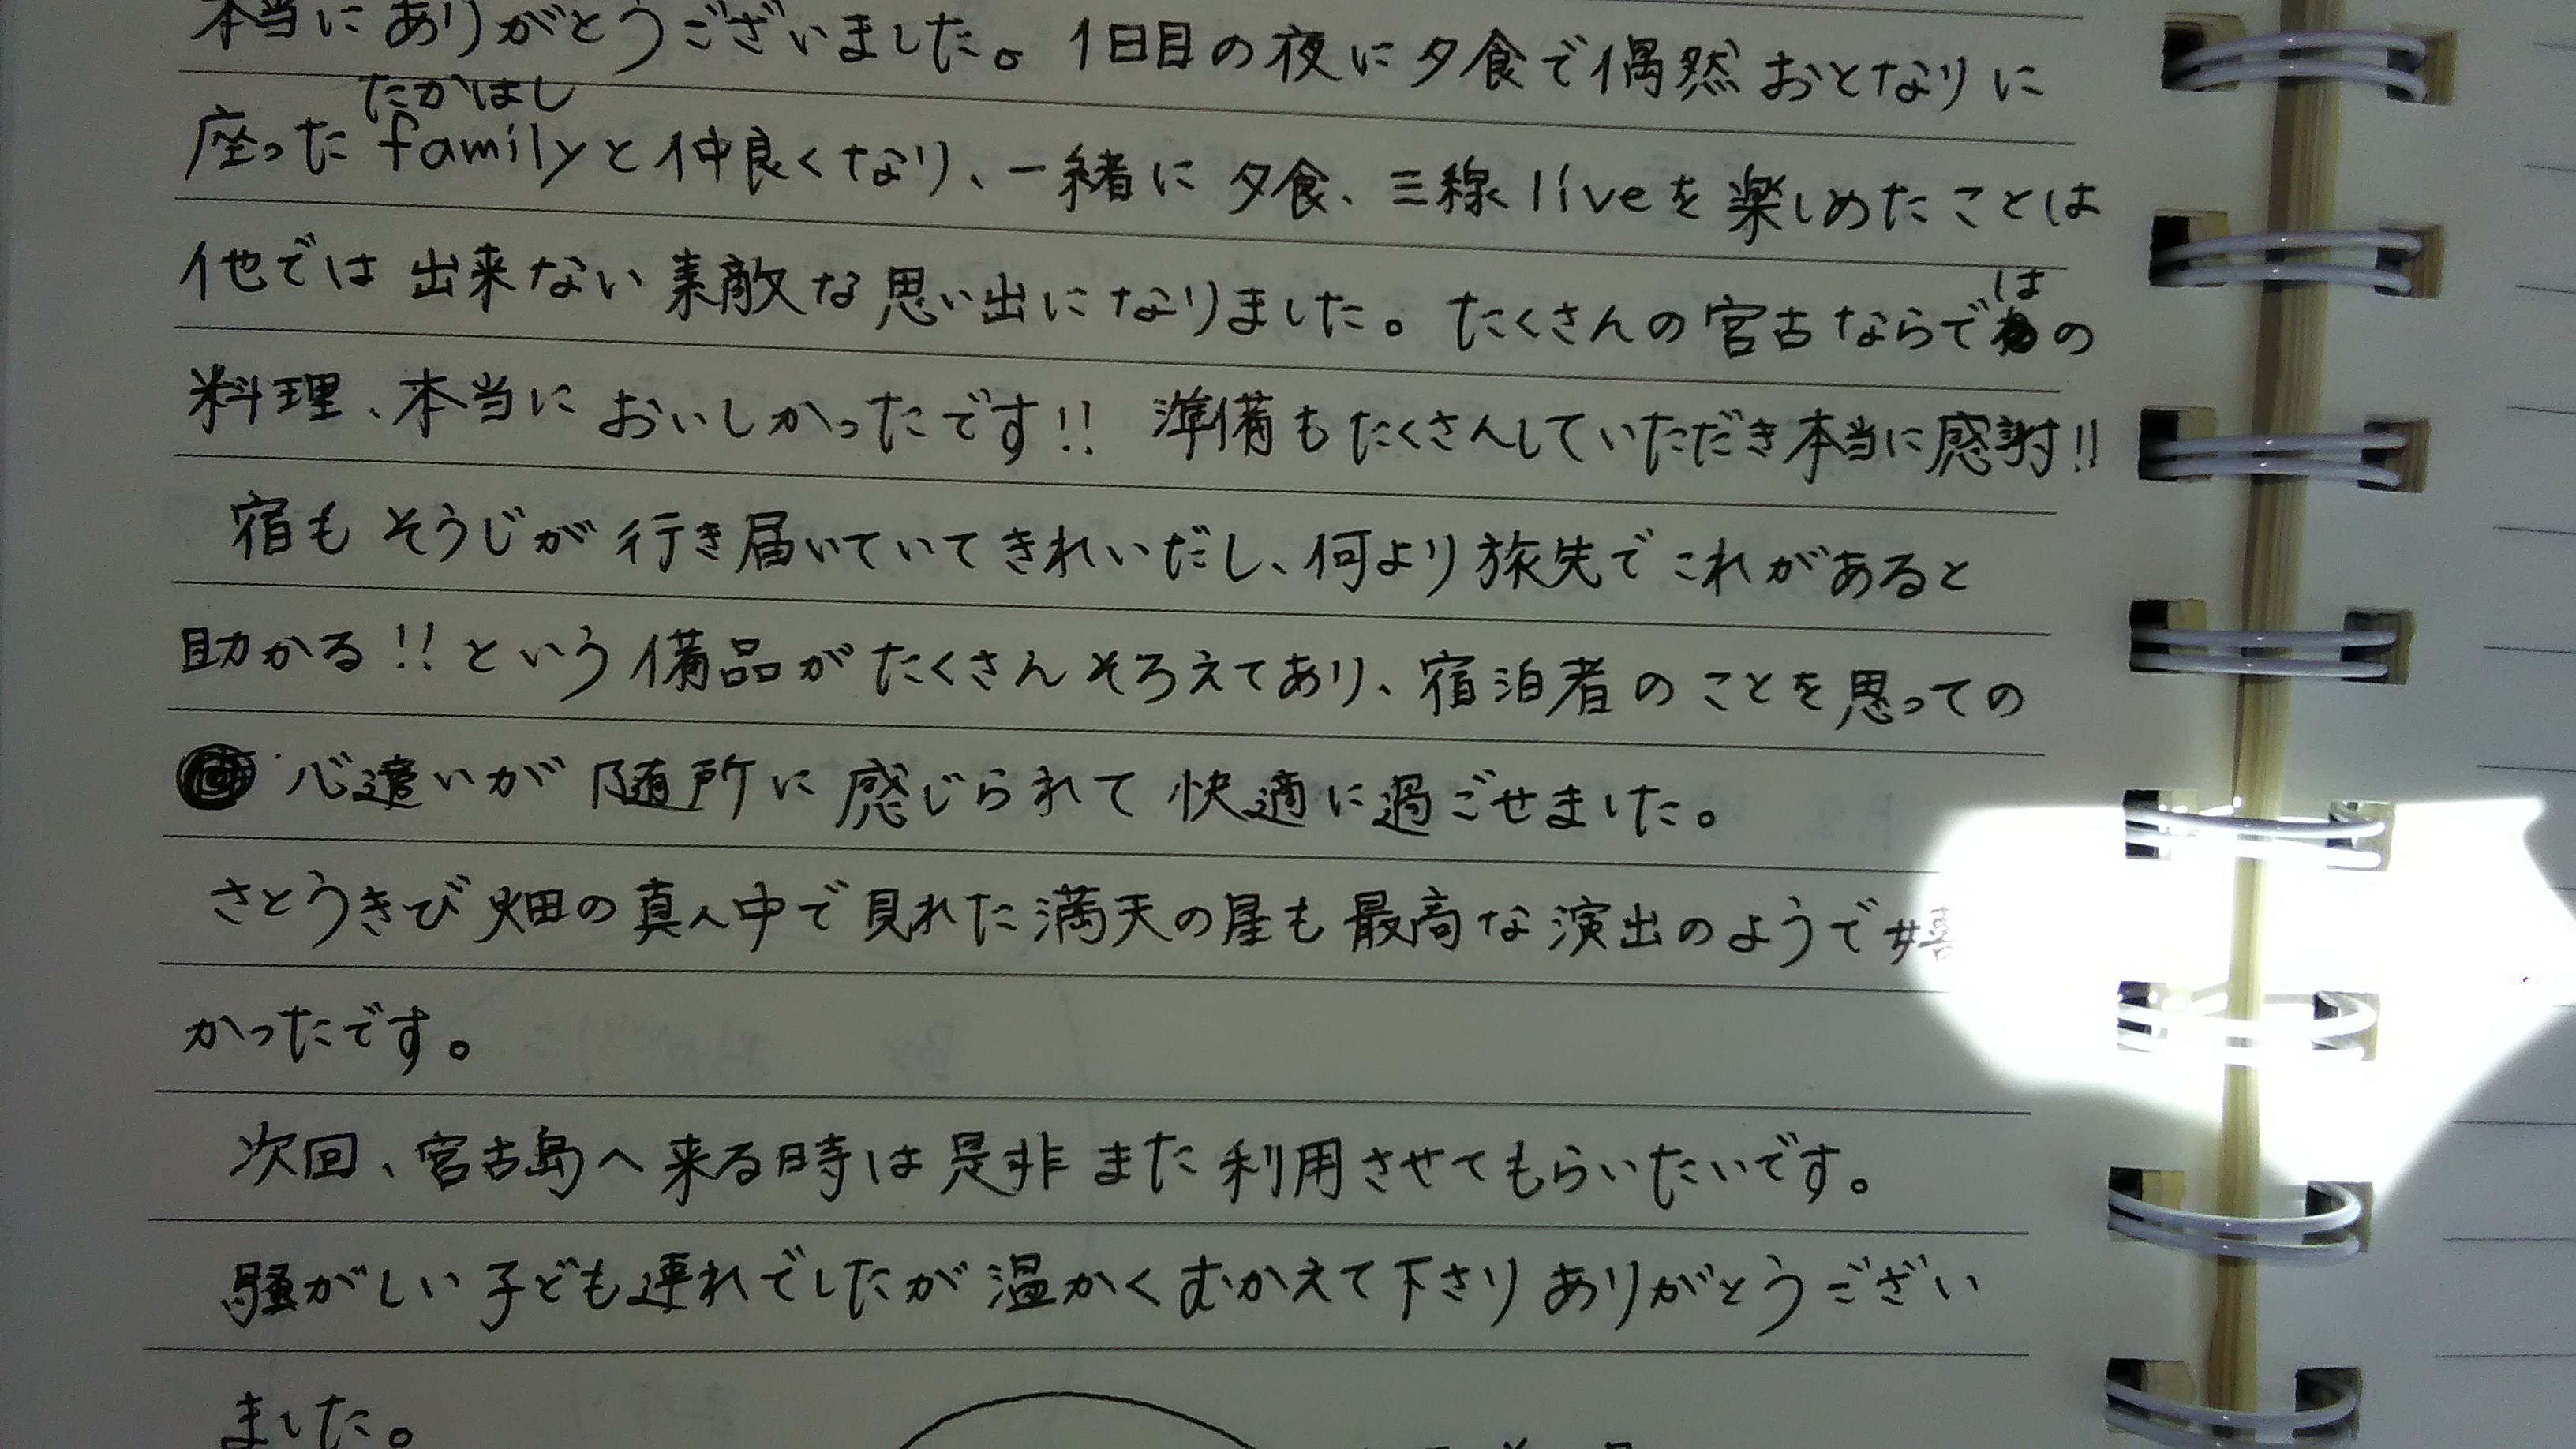 本当にありがとうございました。1日目の夜に夕食で偶然おとなりに
たかはし
座ったfamilyと仲良くなり、一緒に夕食、三線liveを楽しめたことは
他では出来ない素敵な思い出になりました。たくさんの宮古ならではの
料理、本当においしかったです!! 準備もたくさんしていただき本当に感謝!!
宿もそうじが行き届いていてきれいだし、何より旅先でこれがあると
助かる!!という備品がたくさんそろえてあり、宿泊者のことを思っての
心遣いが随所に感じられて快適に過ごせました。
さとうきび畑の真ん中で見れた満天の星も最高な演出のようで嬉
かったです。
次回、宮古島へ来る時は是非また利用させてもらいたいです。
騒がしい子ども連れでしたが温かくむかえて下さりありがとうござい
ました。